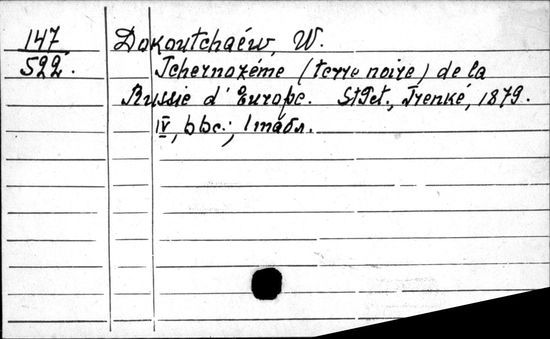 147 Dokoutchaéw, W.
522. Tchernozéme (terre noire) de la
Russie d'Europe. StPet., Trenké, 1879.
IV, 66c.; 1 табл.